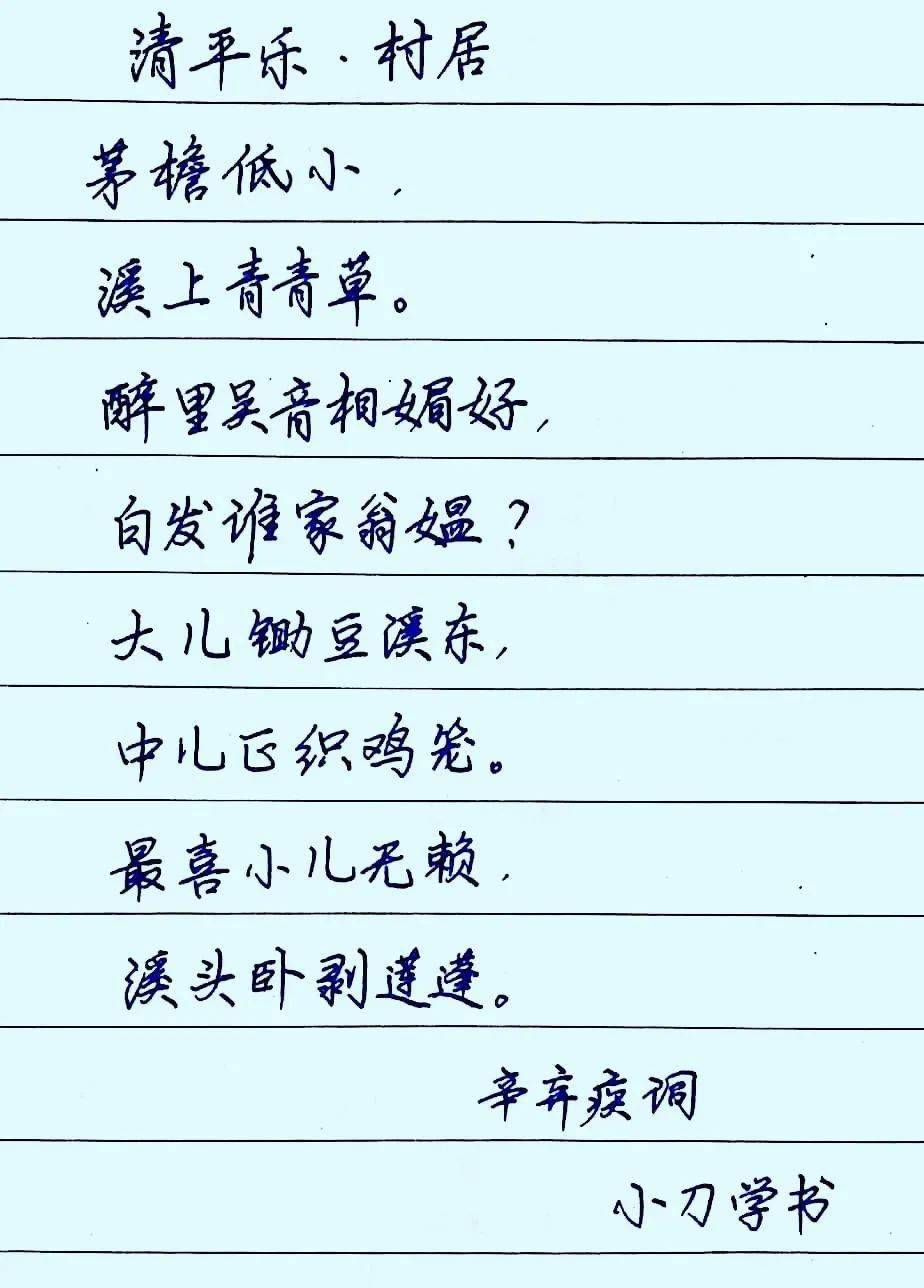 清平乐·村居
茅檐低小，
溪上青青草。
醉里吴音相媚好，
白发谁家翁媪？
大儿锄豆溪东，
中儿正织鸡笼。
最喜小儿无赖，
溪头卧剥莲蓬。
辛弃疾词
小刀学书